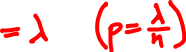 = λ (p = λ/n)